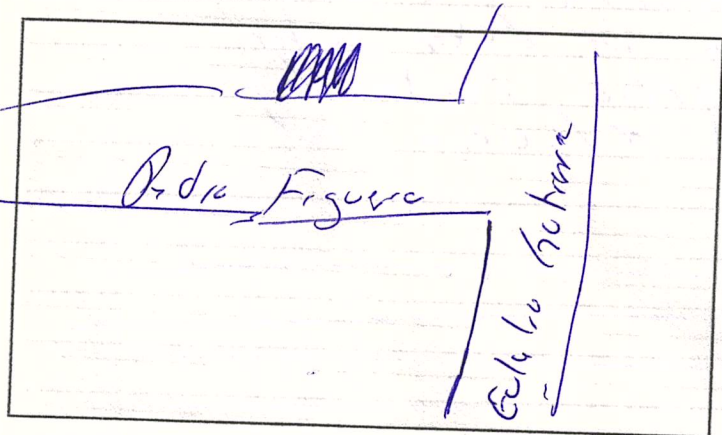 Pedro Figuera
Eulalio Gutierrez